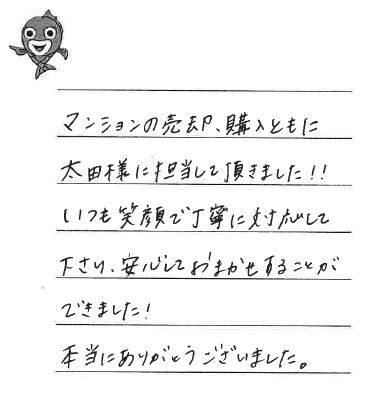 マンションの売却、購入ともに
太田様に担当して頂きました!!
いつも笑顔で丁寧に対応して
下さり、安心しておまかせすることが
できました!
本当にありがとうございました。